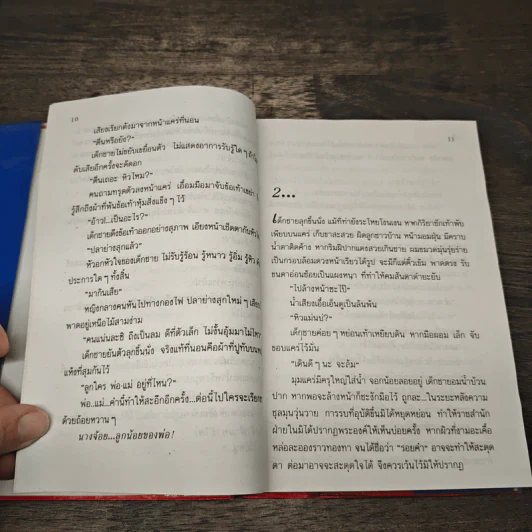 10
เสียงเรียกดังมาจากหน้าแคร่ที่นอน
"ตื่นหรือยัง?"
เด็กชายไม่ขยับเขยื้อนตัว ไม่แสดงอาการรับรู้ใด ๆ
ดับเสียอีกครั้งจะดีดอก
"ตื่นเถอะ หิวไหม?"
คนถามทรุดตัวลงหน้าแคร่ เอื้อมมือมาจับข้อเท้าเขย่า
รู้สึกถึงผ้าที่พันข้อเท้าหุ้มสิ่งแข็ง ๆ ไว้
"อ้าว!...เป็นอะไร?"
เด็กชายดึงข้อเท้าออกอย่างสุภาพ เอียงหน้าเช็ดตากับหัว
"ปลาย่างสุกแล้ว"
หัวอกหัวใจของเด็กชาย ไม่รับรู้ร้อน รู้หนาว รู้อิ่ม รู้หิว
ประการใดๆ ทั้งสิ้น
"มากินเสีย"
หญิงกลางคนหันไปทางกองไฟ ปลาย่างสุกใหม่ ๆ เสียบ
พาดอยู่เหนือไม้สามง่าม
"คนแน่นละซิ ถึงเป็นลม ดีที่ตัวเล็ก ไม่งั้นอุ้มมาไม่ไหว
เด็กชายยันตัวลุกขึ้นนั่ง จริงแท้ที่นอนคือผ้าที่ปูทับบน
แห้งที่สุมกันไว้
"ลูกใคร พ่อแม่ อยู่ที่ไหน?"
พ่อ..แม่..คำนี้ทำให้สะอึกอีกครั้ง...ต่อนี้ไปใครจะเรียก
ด้วยถ้อยหวาน ๆ
นางจ๋อย...ลูกน้อยของพ่อ!
11
2...
เด็กชายลุกขึ้นนั่ง แม้ทีท่ายังระโหยโรยแรง หากกิริยาชักเท้าพับ
เพียบบนแคร่ เก็บขาสะสวย ผิดลูกชาวบ้าน หน้ามอมฝุ่น มีคราบ
น้ำตาติดค้าง หากริมฝีปากแดงสวยเกินชาย ผมขมวดมุ่นรุ่ยร่าย
เป็นกรอบล้อมดวงหน้าเรียวได้รูป จะมีก็แต่คิ้วเข้ม พาดตรง รับ
ขนตาอ่อนช้อยเป็นแผงหนา ที่ทำให้คมสันตาดำขะยับ
"ไปล้างหน้าซะไป๊"
น้ำเสียงเอื้อเอ็นดูเป็นล้นพ้น
"หิวแม่นบ่?"
เด็กชายค่อย ๆ หย่อนเท้าเหยียบดิน หากมือผอม เล็ก จับ
ขอบแคร่ไว้มั่น
"เดินดี ๆ นะ จะล้ม"
มุมแคร่มีครุใหญ่ใส่น้ำ จอกน้อยลอยอยู่ เด็กชายอมน้ำบ้วน
ปาก หากพอจะล้างหน้าก็ชะงักมือไว้ ถูกละ...ในระยะหลังความ
ชุลมุนวุ่นวาย การรบที่อุบัติขึ้นมิได้หยุดหย่อน ทำให้ราชสำนัก
ฝ่ายในมิได้ปรากฏพระองค์ให้เห็นบ่อยครั้ง หากผิวที่งามอะเคื้อ
หล่อละอองราวทองทา จนได้ชื่อว่า "รอยคำ" อาจจะทำให้สะดุด
ตา ต่อมาอาจจะสะดุดใจได้ จึงควรเว้นไว้มิให้ปรากฏ